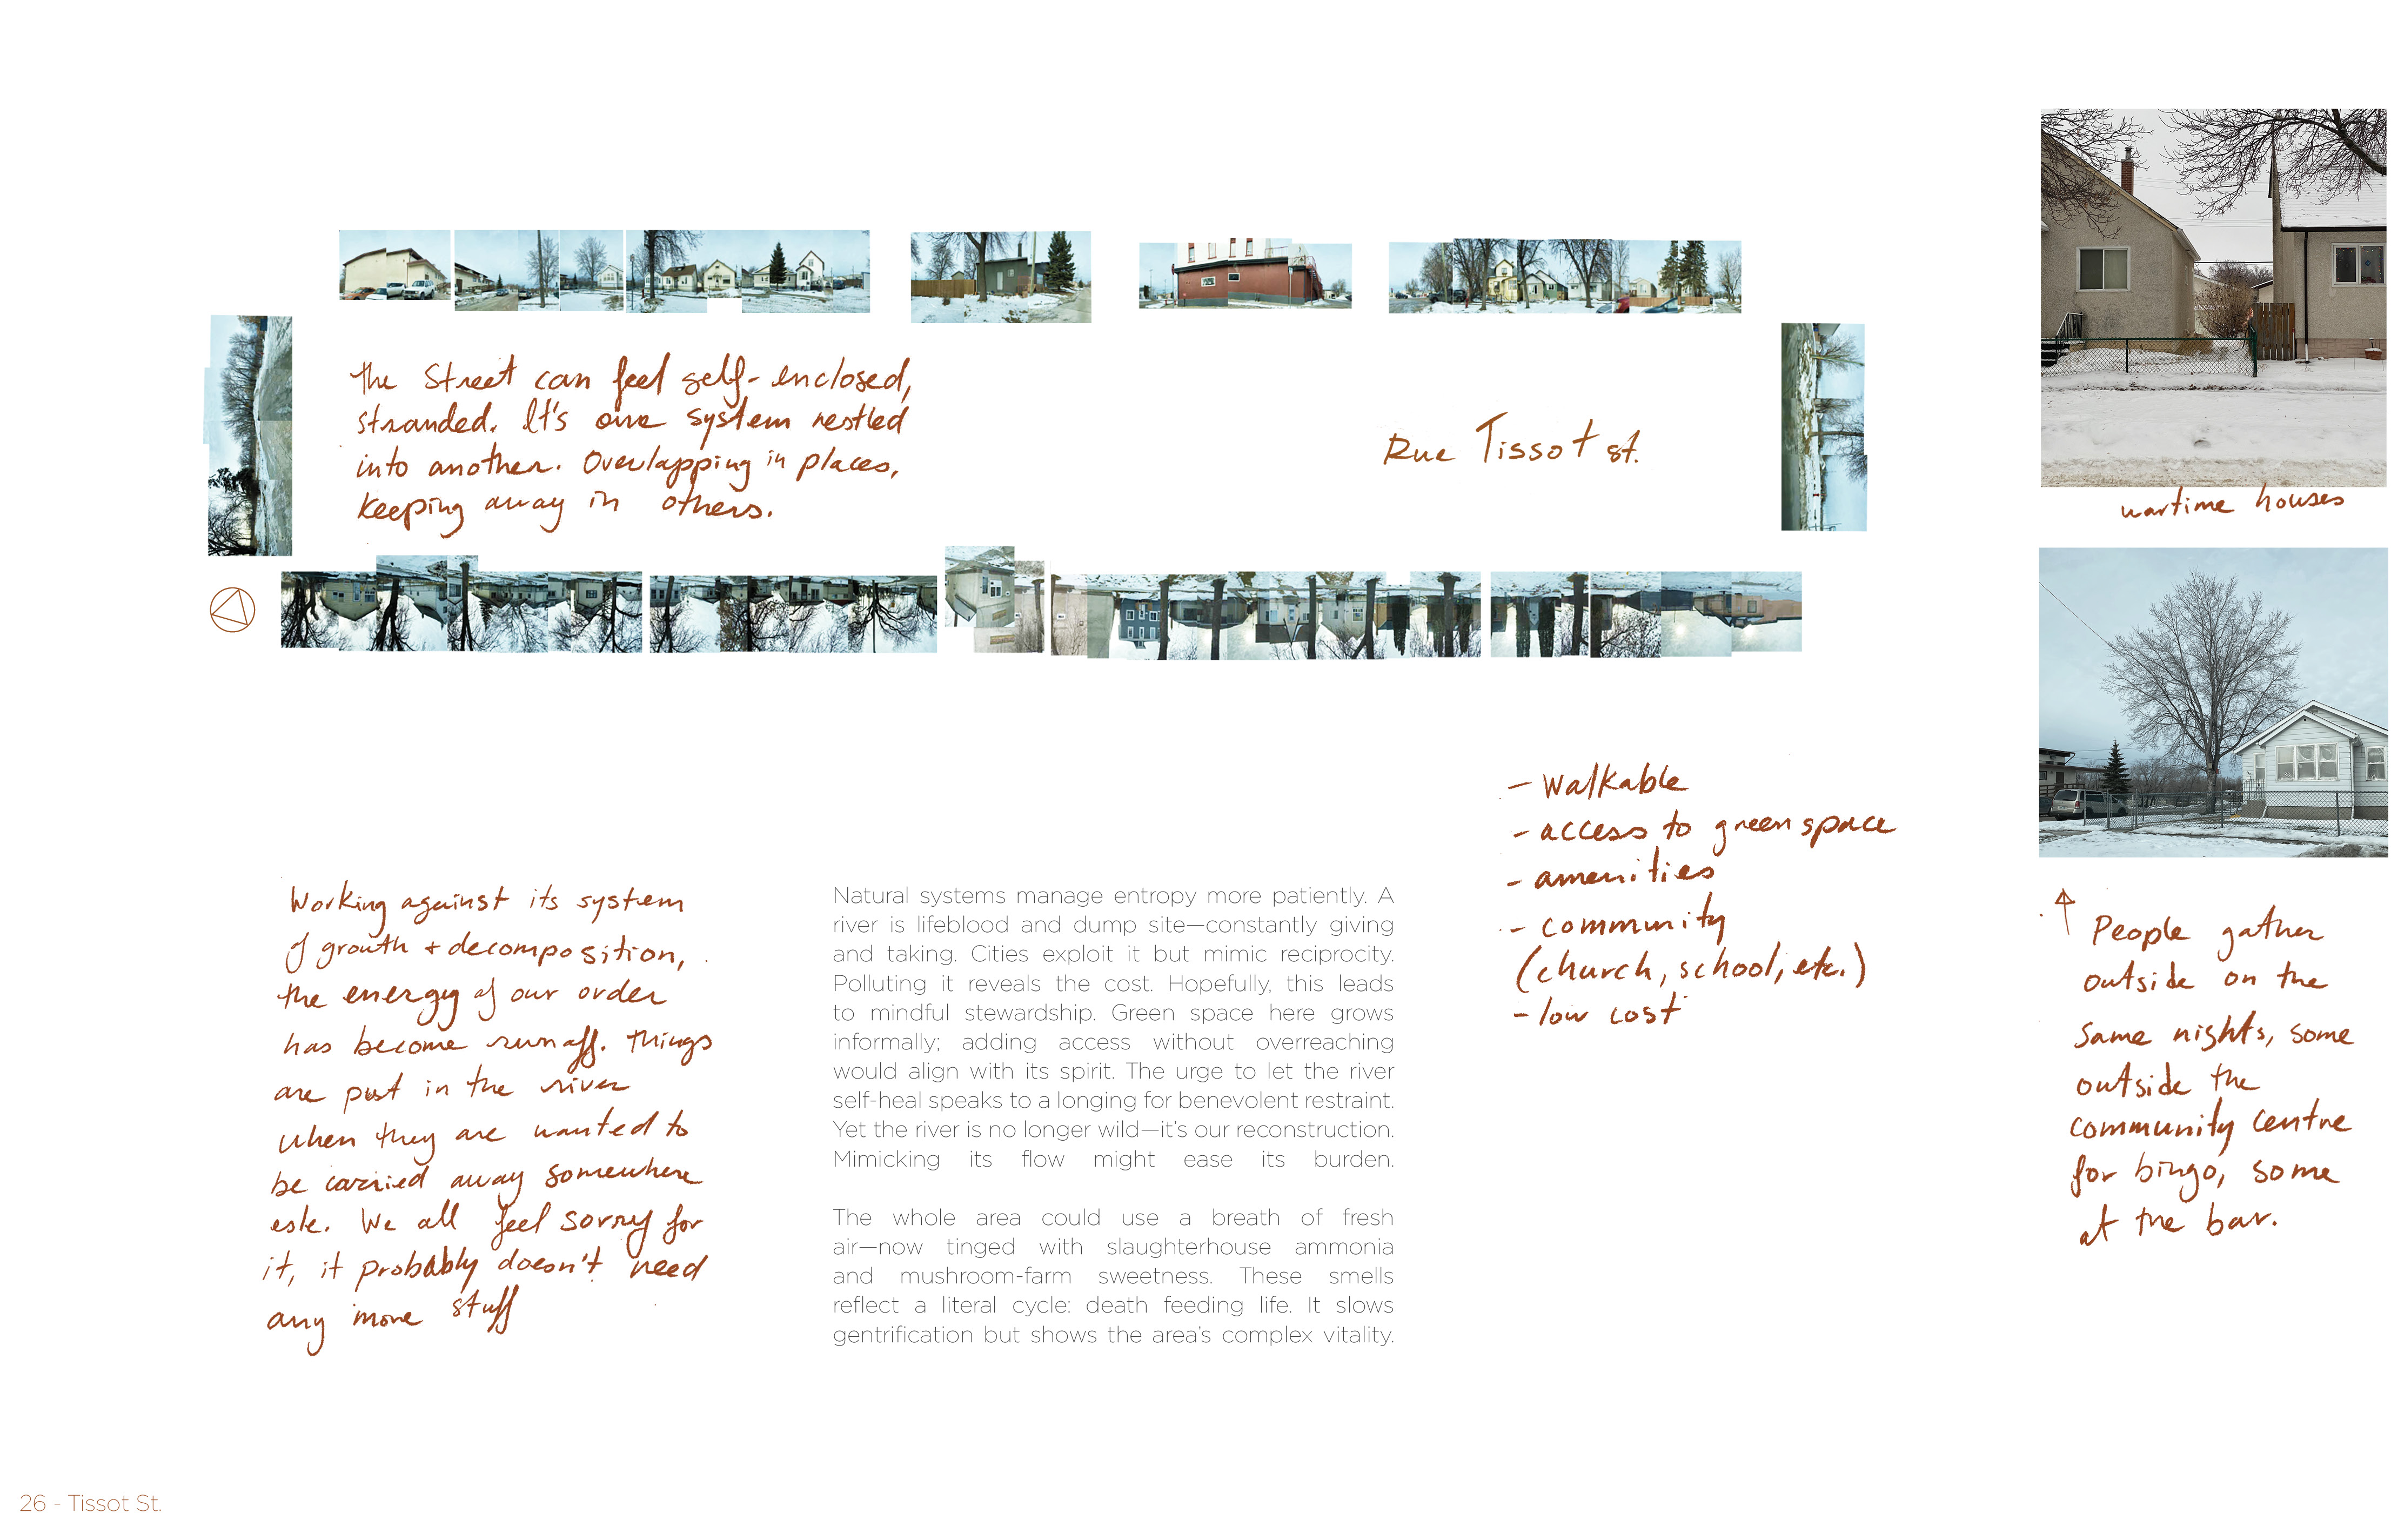 the Street can feel self-enclosed,
stranded. It's one system nestled
into another. Overlapping in places,
keeping away in others.
Rue Tissot st.
wartime houses
Working against its system
of growth + decomposition,
the energy of our order
has become runoff. Things
are put in the river
when they are wanted to
be carried away somewhere
esle. We all feel sorry for
it, it probably doesn't need
any more stuff
Natural systems manage entropy more patiently. A
river is lifeblood and dump site—constantly giving
and taking. Cities exploit it but mimic reciprocity.
Polluting it reveals the cost. Hopefully, this leads
to mindful stewardship. Green space here grows
informally; adding access without overreaching
would align with its spirit. The urge to let the river
self-heal speaks to a longing for benevolent restraint.
Yet the river is no longer wild—it's our reconstruction.
Mimicking its flow might ease its burden.
The whole area could use a breath of fresh
air—now tinged with slaughterhouse ammonia
and mushroom-farm sweetness. These smells
reflect a literal cycle: death feeding life. It slows
gentrification but shows the area's complex vitality.
- walkable
- access to green space
- amenities
- community
(church, school, etc.)
- low cost
People gather
outside on the
same nights, some
outside the
community centre
for bingo, some
at the bar.
26 - Tissot St.